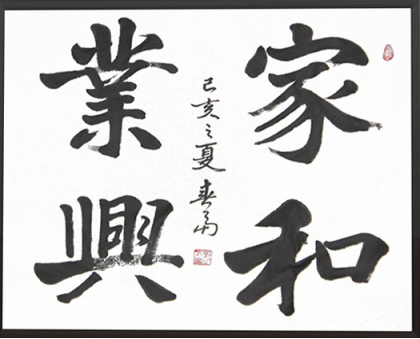 家和
業興
己亥之夏春